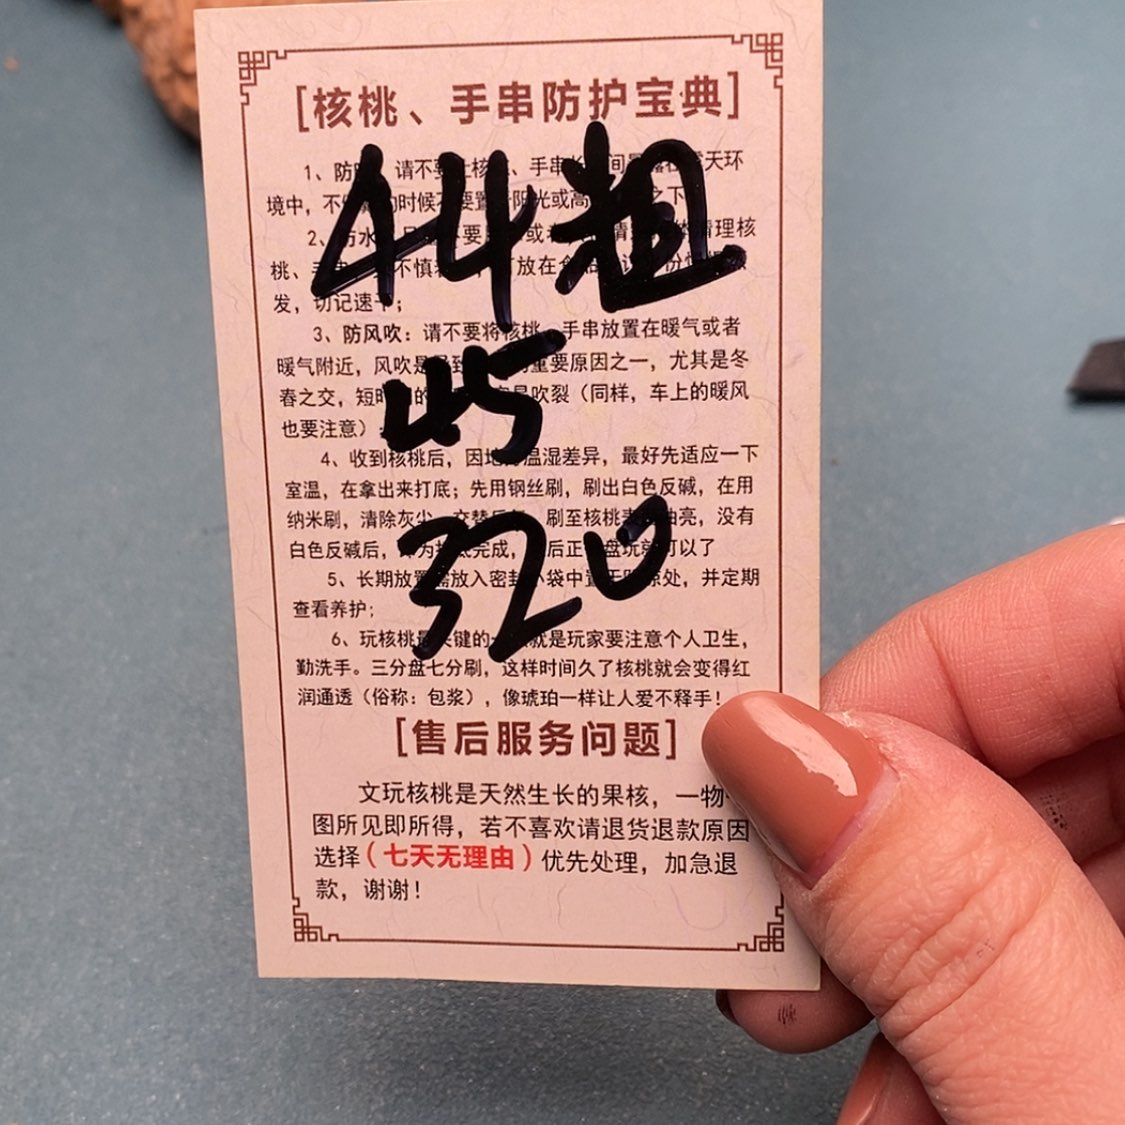 [核桃、手串防护宝典]
1、防 请不要 核 、手串长 间暴露在 天环
境中，不 的时候不要置 阳光或高 之下
2、防水 不要 或 清 清理核
桃、手串 不慎 放在
发，切记速干；
3、防风吹：请不要将核桃、手串放置在暖气或者
暖气附近，风吹是 到 的重要原因之一，尤其是冬
春之交，短时 的 易吹裂（同样，车上的暖风
也要注意）
4、收到核桃后，因地 温湿差异，最好先适应一下
室温，在拿出来打底；先用钢丝刷，刷出白色反碱，在用
纳米刷，清除灰尘，交替 刷至核桃表 油亮，没有
白色反碱后， 为 完成， 后正 盘玩就可以了
5、长期放置需放入密封小袋中置于阴凉处，并定期
查看养护；
6、玩核桃最关键的一 就是玩家要注意个人卫生，
勤洗手。三分盘七分刷，这样时间久了核桃就会变得红
润通透（俗称：包浆），像琥珀一样让人爱不释手！
[售后服务问题]
文玩核桃是天然生长的果核，一物
图所见即所得，若不喜欢请退货退款原因
选择（七天无理由）优先处理，加急退
款，谢谢！
44粗
45
320